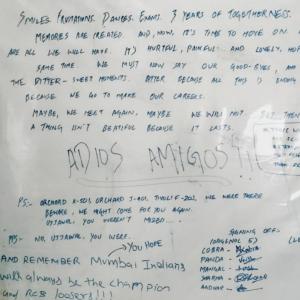 SMILES. INVITATIONS. DANCES. EXAMS. 3 YEARS OF TOGETHERNESS.
MEMORIES ARE CREATED. AND, NOW, IT'S TIME TO MOVE ON.
ARE ALL WE WILL HAVE. IT'S HURTFUL, PAINFUL AND LONELY,
SAME TIME WE MUST NOW SAY OUR GOOD-BYES, AND
THE BITTER-SWEET MOMENTS. BITTER BECAUSE ALL THIS IS ENDING
BECAUSE WE GO TO MAKE OUR CAREERS.
MAYBE, WE MEET AGAIN, MAYBE WE WILL NOT. BUT THEN
A THING ISN'T BEATIFUL BECAUSE IT LASTS.
ADIOS AMIGOS!!!
PS:- ORCHARD K-501, ORCHARD J-401, TIVOLI F-202, WE WERE THERE
BEFORE, WE MIGHT COME FOR YOU AGAIN.
UJJAWAL YOU WEREN'T MISSED...
PS:- NO, UJJAWAL, YOU WERE.
YOU HOPE
AND REMEMBER Mumbai Indians
will always be the champion
and RCB loosers!!!
SIGNING OFF
COBRA -
PANDA -
MANGAL -
SHARMA -